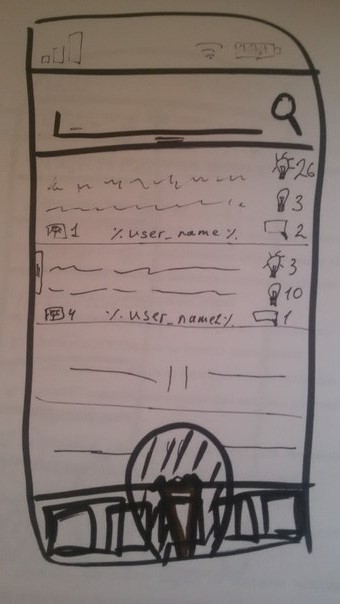 26
3
1 %user_name% 2
3
10
4 %user_name2% 1